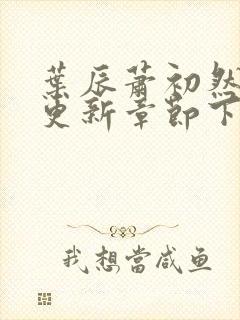 葉辰蕭初然
更新章節下
我想當咸鱼